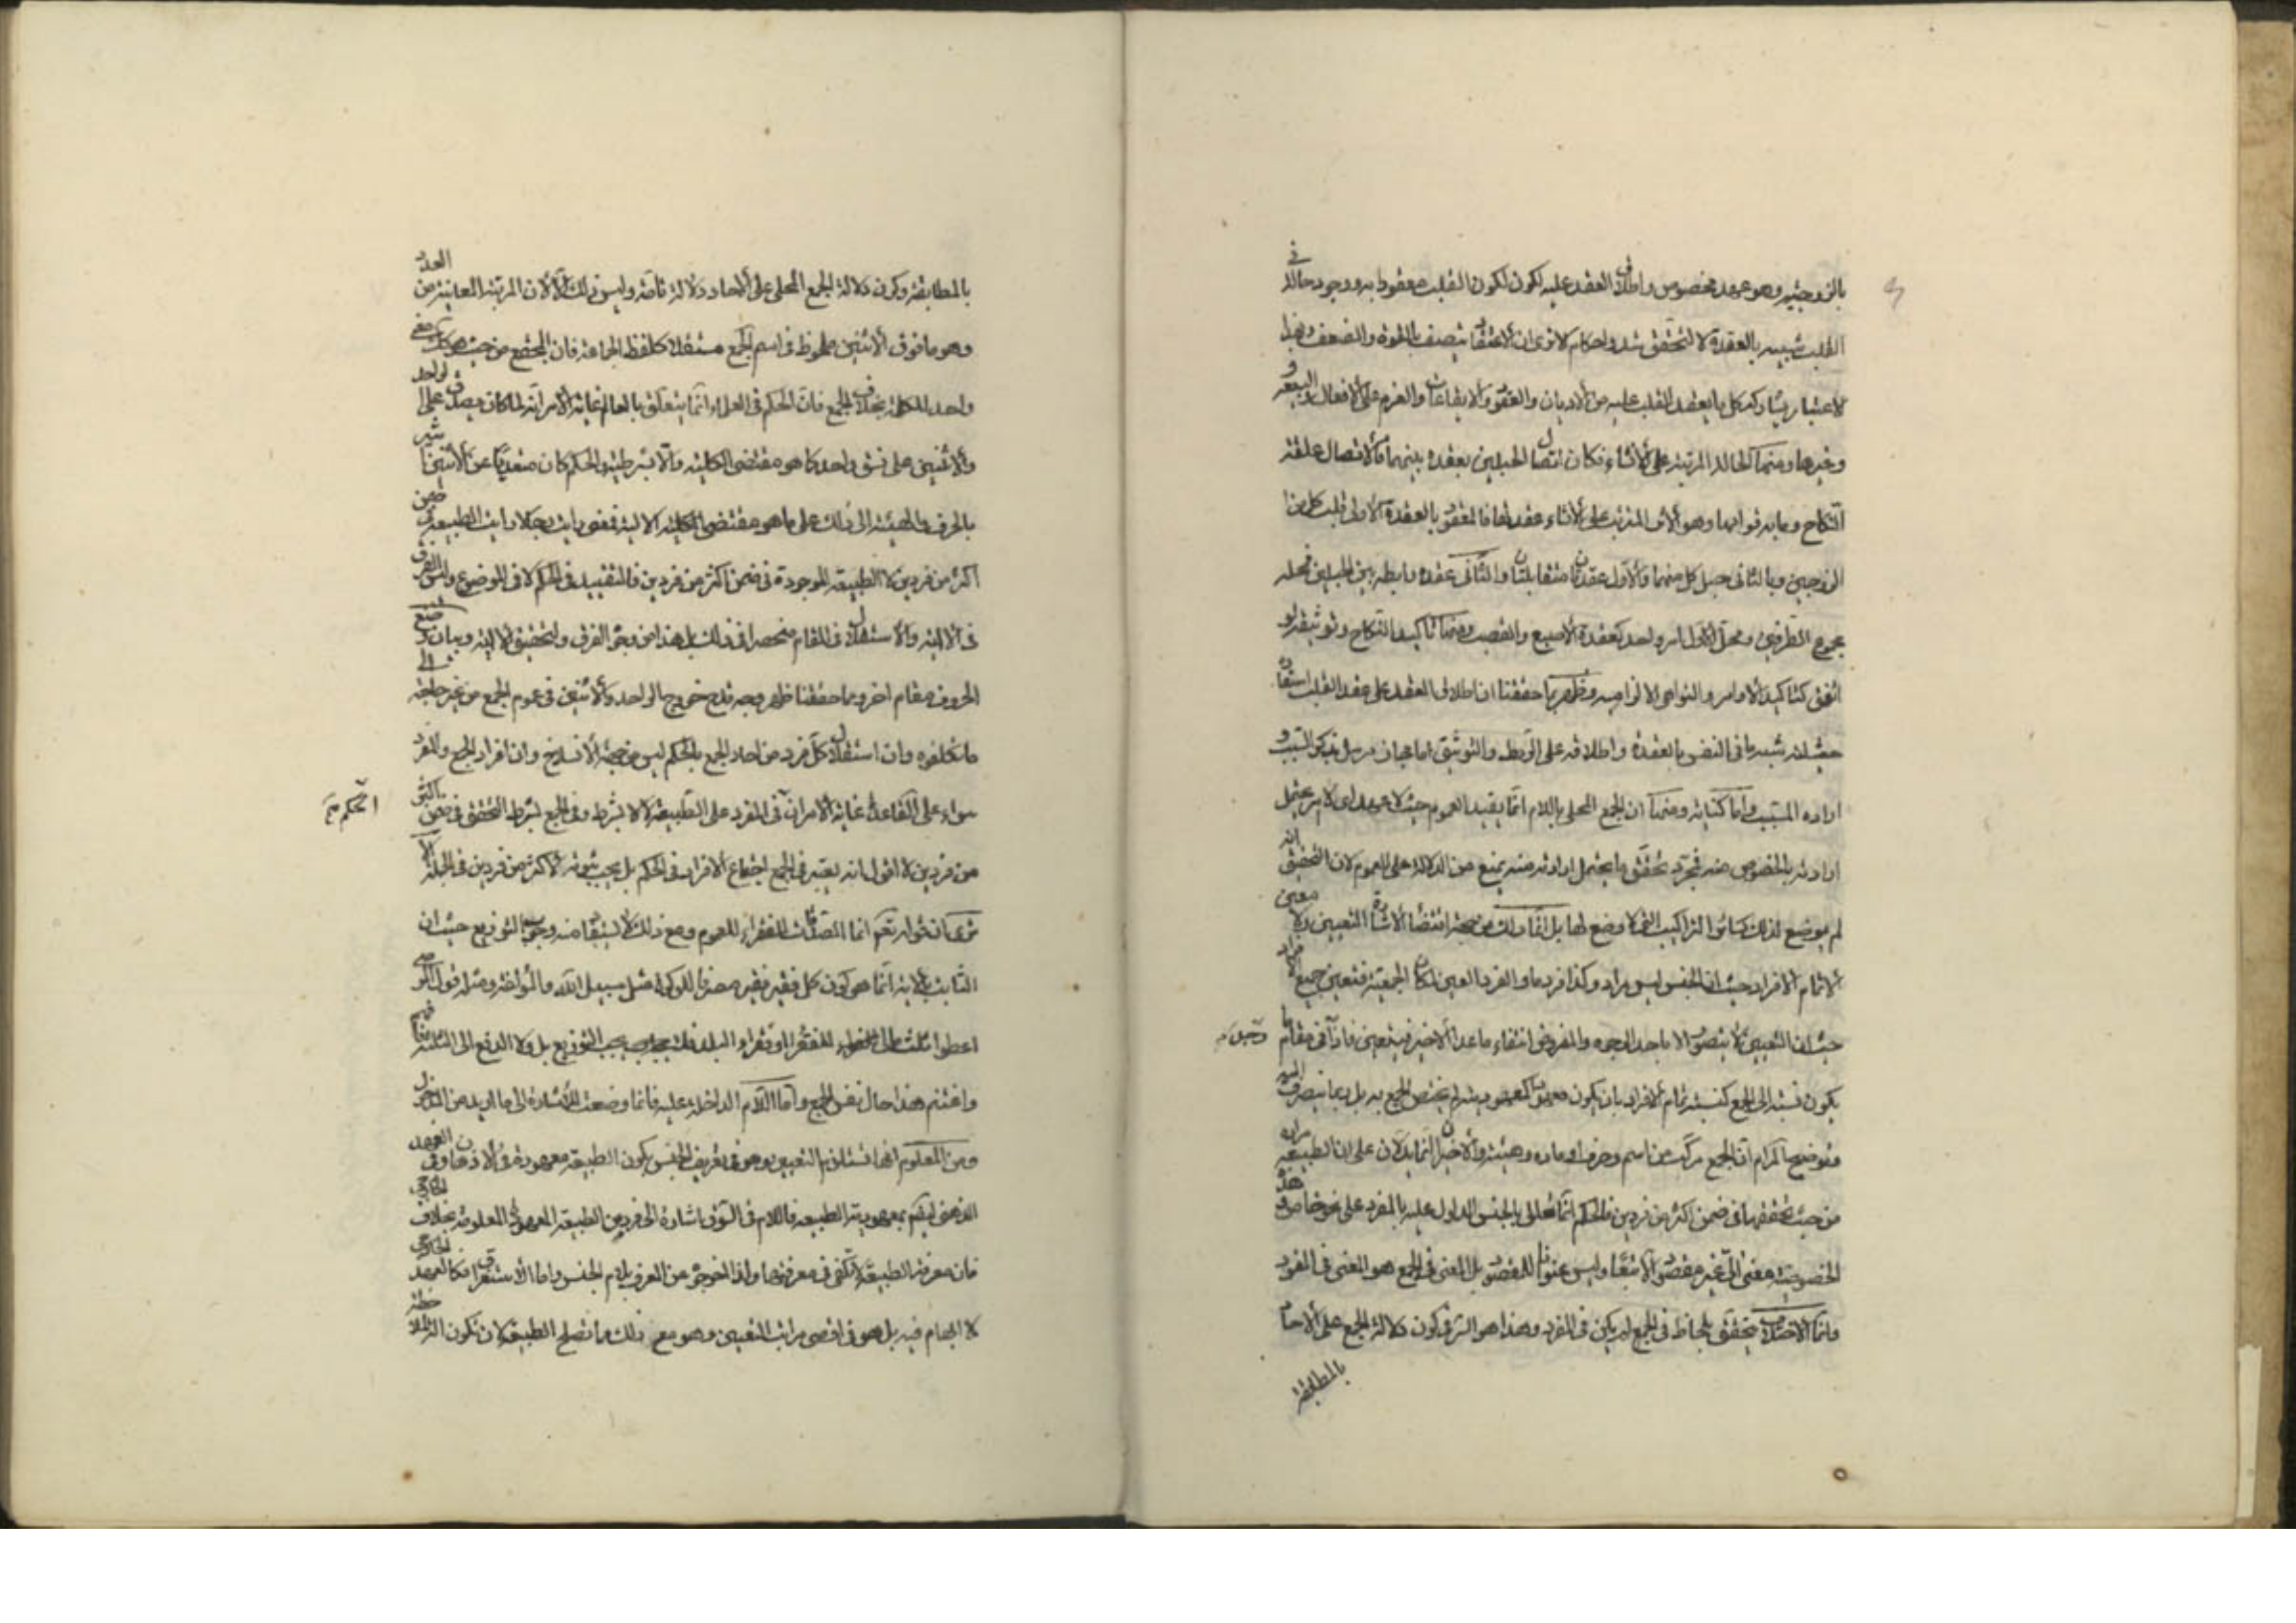 بالزوجية وهو عهد مخصوص واطلاق العقد عليه لكون القلب معقودا به ووجود حالة في
القلب شبيه بالعقدة لا لتحقق شد واحكام الا ترى ان الاعتقاد يتصف بالقوة والضعف وبهذا
الاعتبار يشاركه كل ما يعقد القلب عليه من الاديان والعقود والايقاعات والعزم على الافعال والبيعة و
وغيرها ومنها الحالة المرتبة على الانشاء فكان اتصال الحبلين بعقدة بينهما والاتصال علقة
النكاح وما به قوامها وهو الاثر المترتب على الانشاء عقد لها فالمعقود بالعقدة الاولى قلب كل من
الزوجين وبالثاني حبل كل منهما والاول عقدتان متقابلتان والثاني عقدة رابطة بين الحبلين فمحله
مجموع الطرفين ومحل الاول امر واحد كعقدة الاصبع والقصب ومنها تاكيد النكاح وتوثيقه لو
اتفق كتاكيد الاوامر والنواهي الالزامية وظهر بما حققنا ان اطلاق العقد على عقد القلب استعارة
حيث انه شبه ما في النفس بالعقدة واطلاقه على الربط والتوثيق اما مجاز مرسل بذكر السبب و
ارادة المسبب واما كناية ومنها ان الجمع المحلى باللام انما يفيد العموم حيث لا عهد اي لا امر يحتمل
ارادته بالخصوص منه فمجرد تحقق ما يحتمل ارادته منه يمنع من الدلالة على العموم لان التحقيق انه
لم يوضع لذلك كسائر التراكيب التي لا وضع لها بل انما ذلك من جهة اقتضاء الاشارة التعيين ولا معين
الا تمام الافراد حيث ان الجنس ليس بمراد وكذا فرد ما والفرد المعين لمكان الجمعية فتعين جميع الافراد
حيث ان التعيين لا يتصور الا باحد الوجوه والمفروض انتفاء ما عدا الاخير فيتعين فاذا في مقام ما
وجد
يكون نسبته الى الجمع كنسبة تمام الافراد بان يكون معهودا كمعهوديته لم يختص الجمع به بل ربما ينصرف اليه
وتوضيح المرام ان الجمع مركب من اسم وحرف او مادة وهيئة والاخيران انما يدلان على ان الطبيعة مرادة
من حيث تحققها في ضمن اكثر من فردين فالحكم انما تعلق بالجنس المدلول عليه بالمفرد على نحو خاص وهذه
الخصوصية معنى الي غير مقصود بالاستقلال وليس عنوانا للمقصود بل المعنى في الجمع هو المعنى في المفرد
وانما الاختلاف بتحقق لحاظ في الجمع لم يكن في المفرد وهذا هو السر في كون دلالة الجمع على الاحاد
بالمطابقة
بالمطابقة وكون دلالة الجمع المحلى على الاحاد دلالة تامة وليس ذلك الا لان المرتبة المعينة من العدد
وهو ما فوق الاثنين ملحوظ في اسم الجمع مستقلا كلفظ الجماعة فان المجتمع من حيث هو كذلك معنى
واحد للكلمة بخلاف الجمع فان الحكم في العلماء انما يتعلق بالعالم غاية الامر انه لما كان يصدق على الواحد
والاثنين على نسق واحد كما هو مقتضى الكلية واللا بشرطية والحكم كان متعديا عن الاثنين اشير
بالحرف والهيئة الى ذلك على ما هو مقتضى الكلية الالية فمعنى رايت رجالا رايت الطبيعة في ضمن
اكثر من فردين لا الطبيعة الموجودة في ضمن اكثر من فردين فالتقييد في الحكم لا في الموضوع وليس الفرق
في الالية والاستقلال في المقام منحصرا في ذلك بل هذا من وجوه الفرق ولتحقيق الالية وبيان وضع
الحروف مقام اخر ومما حققنا ظهر وجه قدح خروج الواحد والاثنين في عموم الجمع من غير حاجة الى
ما تكلفوه وان استقلال كل فرد من احاد الجمع بالحكم ليس من جهة الانسلاخ وان افراد الجمع والمفرد
سواء على القاعدة غاية الامر ان في المفرد على الطبيعة لا بشرط وفي الجمع بشرط التحقق في ضمن اكثر
الحكم
من فردين لا اقول انه يعتبر في الجمع اجتماع الافراد في الحكم بل يجب ثبوته لاكثر من فردين في الجملة الا
ترى ان قوله تعالى انما الصدقات للفقراء للعموم ومع ذلك لا يستفاد منه وجوب التوزيع حيث ان
الثابت بالاية انما هو كون كل فقير فقير مصرفا للزكوة مثل سبيل الله والمؤلفة ومثله قول الموصي
اعطوا ثلث مالي للفقراء او فقراء البلد فلا يجب التوزيع بل ولا الدفع الى الثلثة فافهم
واغتنم هذا حال نفس الجمع واما اللام الداخلة عليه فانما وضعت للاشارة الى ما اريد من المدخول
ومن المعلوم انها تستلزم التعيين وهو في تعريف الجنس بكون الطبيعة معهودة في الاذهان وفي العهد
الذهني ليتم بمعهودية الطبيعة فاللام في السوق اشارة الى فرد من الطبيعة المعهودة المعلومة بخلاف الخارجي
فان معرفة الطبيعة لا تكفي في معرفتهما ولذا اخرجوه من المعرف بلام الجنس واما الاستغراق فكالعهد الخارجي
لا ابهام فيه بل هو في اقصى مراتب التعيين وهو مع ذلك ما تصلح الطبيعة لان تكون الة لملاحظته